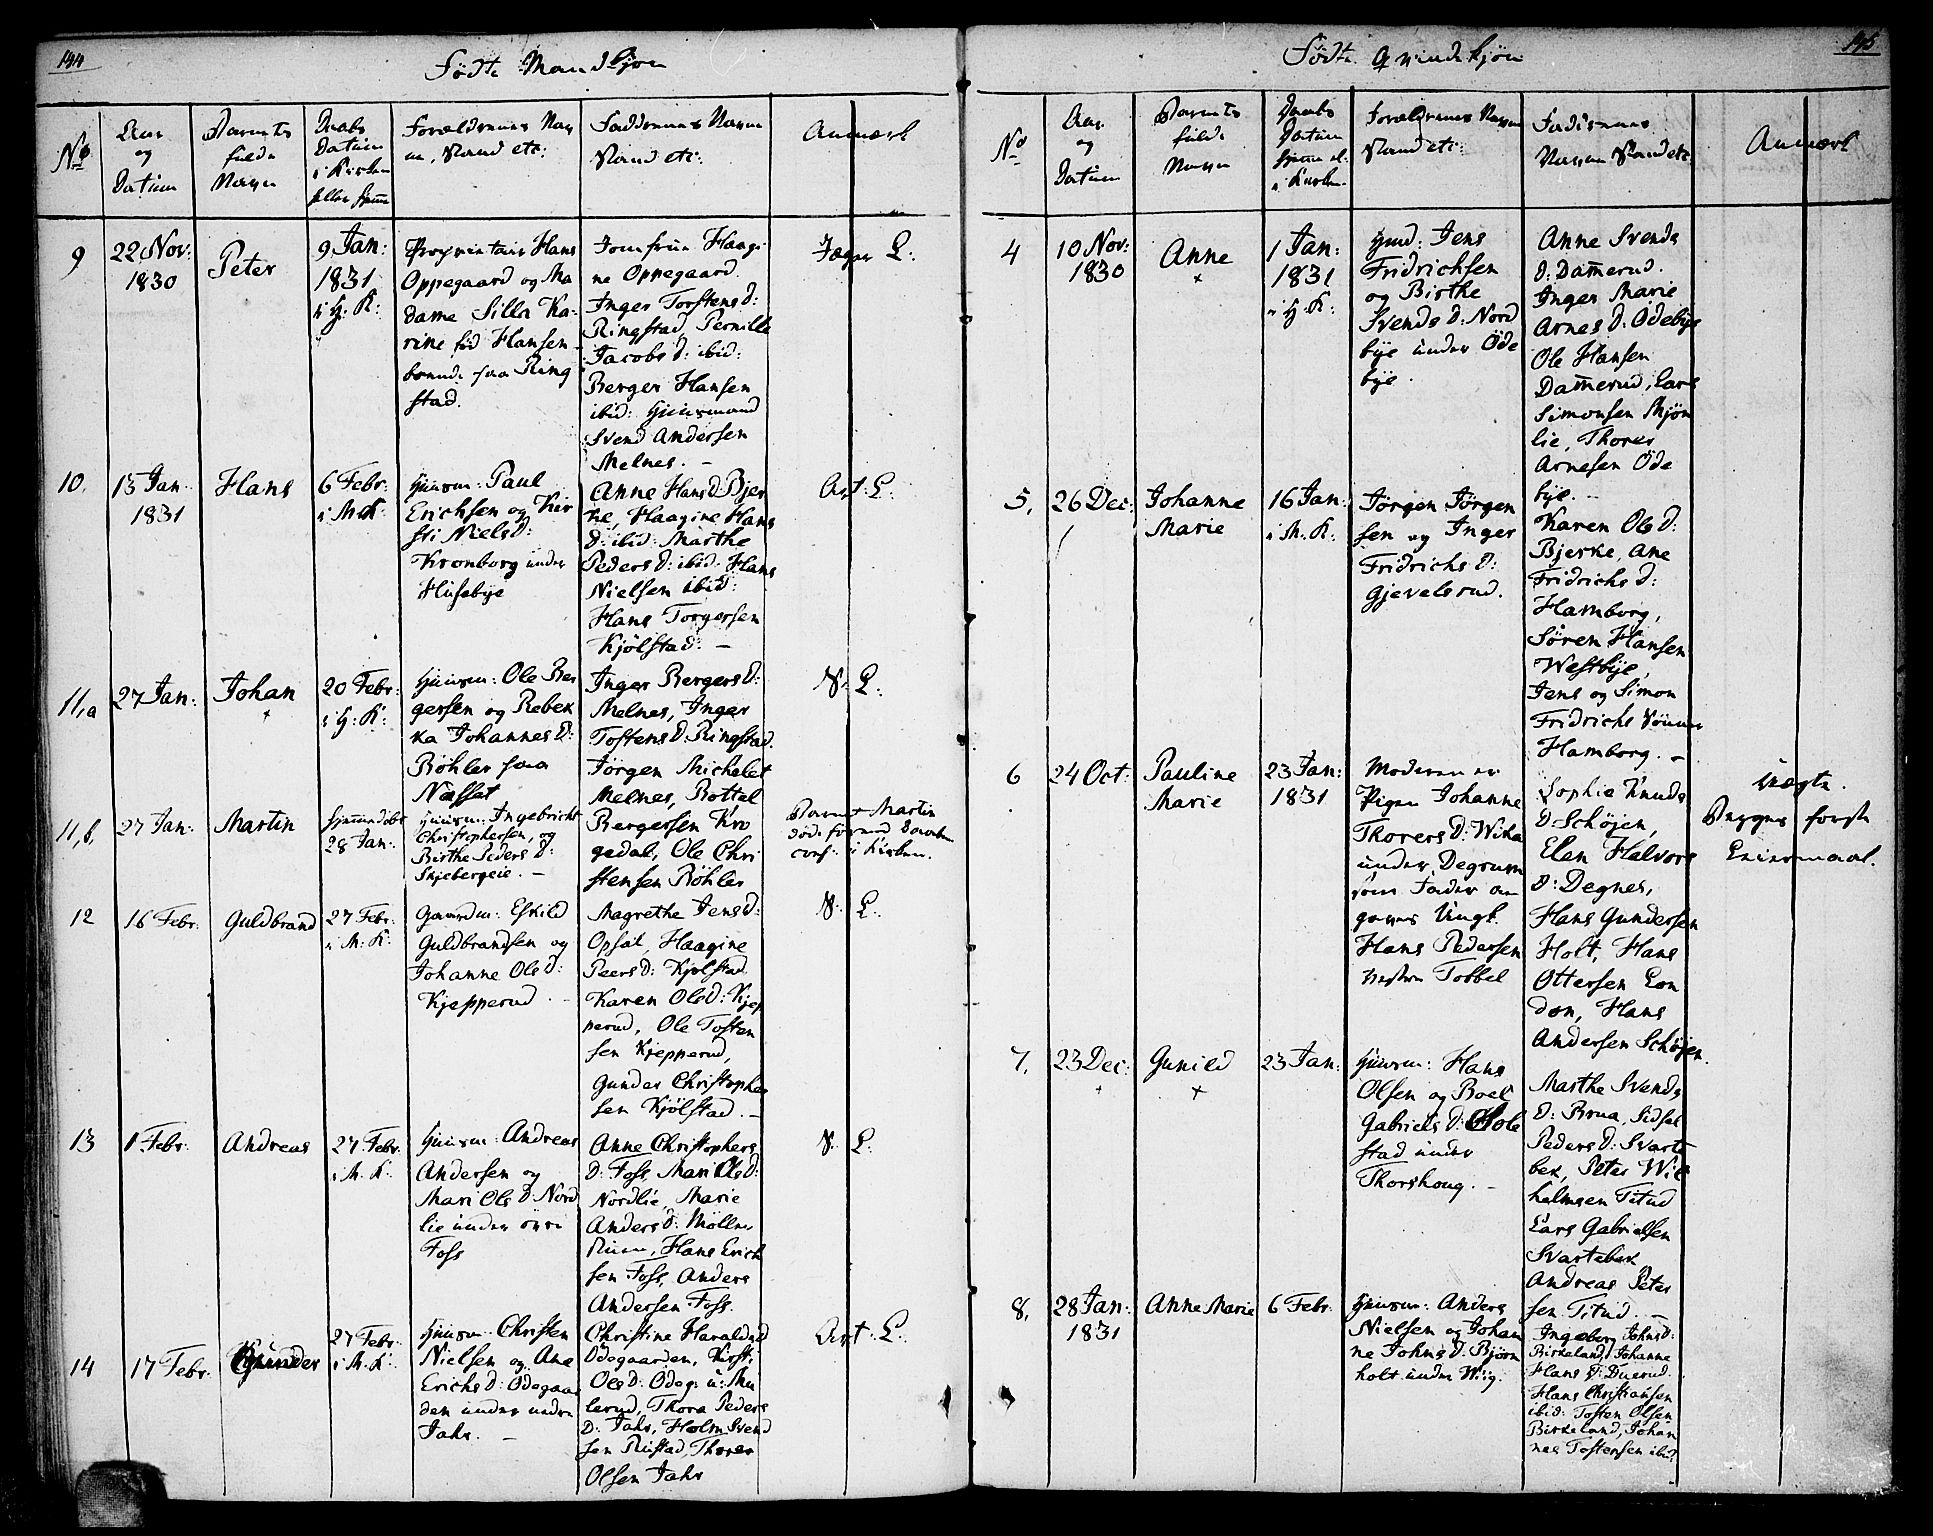 144
Fødte Mandkjøn
No
Aar
og
Datum
Barnets
fulde
Navn
Daabs
Datum
i Kirken
eller hjemme
Forældrenes Nav
n, Stand etc:
Faddernes Navne
Stand etc:
Anmærk
9
22 Nov:
1830
Peter
9 Jan:
1831
i H: K:
Proprietair Hans
Oppegaard og Ma
dame Silla Ka-
rine fød Hansen
boende paa Ring
stad.
Jomfrue Haagi
ne Oppegaard.
Inger Torstensd:
Ringstad, Pernille
Jacobsd: ibid:
Berger Hansen
ibid: Huusmand
Svend Andersen
Melnes. –
Jæger L:
10.
13 Jan
1831
Hans
6 Febr:
i M: K:
Huusm: Paul
Erichsen og Kir
sti Nielsd:
Kronborg under
Husebye
Anne HansD: Bjer
ke, Haagine Hans
D: ibid: Marthe
PedersD: ibid: Hans
Nielsen ibid:
Hans Torgersen
Kjølstad: –
Art: L:
11,a
27 Jan:
Johan
+
20 Febr:
i H: K:
Huusm: Ole Ber
gersen og Rebek
ka JohannesD:
Bøhler paa
Næsset
Inger BergersD:
Melnes, Inger
TostensD: Ringstad.
Jørgen Michelet
Melnes, Bottel
Bergersen Kro
gedal, Ole Chri
stensen Bøhler
N: L:
11,b,
27 Jan:
Martin
hjemmedøbt
28 Jan:
Huusm: Ingebricht
Christophersen, og
Birthe PedersD:
Skjebergeie. –
Barnet Martin
døde førend Daaben
conf: i Kirken.
12
16 Febr:
Guldbrand
27 Febr:
i M: K:
Gaardm: Eskild
Guldbrandsen og
Johanne OlsD:
Kjepperud. –
Magrethe JensD:
Opsal, Haagine
PeersD: Kjølstad
Karen OlsD: Kjep
perud, Ole Tosten
sen Kjepperud,
Gunder Christopher
sen Kjølstad. –
N: L:
13
1 Febr:
Andreas
27 Febr:
i M: K:
Huusm: Andreas
Andersen og
Mari OlsD: Nord
lie under øvre
Foss
Anne Christophers
D: Foss, Mari OlsD:
Nordlie, Marie
AndersD: Mölle,
Hans Erich
sen Foss, Anders
Andersen Foss.
N: L:
14
17 Febr:
Gunder
27 Febr:
i M: K:
Huusm: Christen
Nielsen og Ane
ErichsD: Ødegaar
den under nedre
Jahr. –
Christine Haraldsd
Ødegaarden, Kirsti
OlsD: Ødeg: u: Mu
lerud, Thora Peders
D: Jahr, Holm Svend
sen Rustad, Thorer
Olsen Jahr
Art: L:
145
Fødte Qvindekjøn
No
Aar
og
Datum
Barnets
fulde
Navn
Daabs
Datum
hjemme el:
i Kirken
Forældrenes Navne
Stand etc:
Faddernes
Navne Stand etc
Anmærk
4
10 Nov:
1830
Anne
+
1 Jan:
1831
i H: K:
Huusm: Jens
Fridrichsen
og Birthe
SvendsD: Nord
bye under Øde
bye.
Anne Svends
D: Damerud.
Inger Marie
ArnesD: Ødebye
Ole Hansen
Damerud, Lars
Simonsen Mjøn
lie, Thorer
Arnesen Øde
bye. –
5,
26 Dec:
Johanne
Marie
16 Jan:
i M. K:
Jørgen Jørgen
sen og Inger
FridrichsD:
Gjevelsrud.
Karen OlsD:
Bjerke, Ane
FridrichsD:
Hamborg,
Søren Hansen
Westbye,
Jens og Simon
Fridrichs Sønner
Hamborg. –
6
24 Oct:
Pauline
Marie
23 Jan:
1831
Moderen er
Pigen Johanne
ThorersD: Wika
under Degrum
som Fader an
gaves Ungk.
Hans Pedersen
Tobbel
Sophie Knuds
D: Schøjen,
Elen Halvors
D: Degnes,
Hans Gundersen
Holt, Hans
Ottersen Lon
don, Hans
Andersen Schøjen.
Uægte.
Begges første
Leiermaal.
7,
23 Dec:
+
Gunild
+
23 Jan:
Huusm: Hans
Olsen og Boel
GabrielsD: Hole
stad under
Thorshoug. –
Marthe Svends
D: Brua, Sidsel
PedersD: Svarte
bek, Peter Wil
helmsen Titud
Lars Gabrielsen
Svartebek
Andreas Peter
sen Titud. –
8,
28 Jan:
1831
Anne Marie
6 Febr:
Huusm: Anders
Nielsen og Johan
ne JohnsD: Bjørn
holt under Wiig.
Ingeborg JohnsD:
Birkeland, Johanne
HansD: Duerud.
Hans Christiansen
ibid: Tosten Olsen
Birkeland, Johan
nes Tostensen ibid: